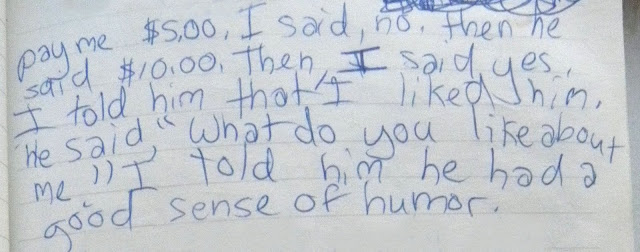 pay me $5.00. I said, no. then he
said $10.00. Then I said yes.
I told him that "I liked him.
He said, "What do you like about
me" I told him he had a
good sense of humor.